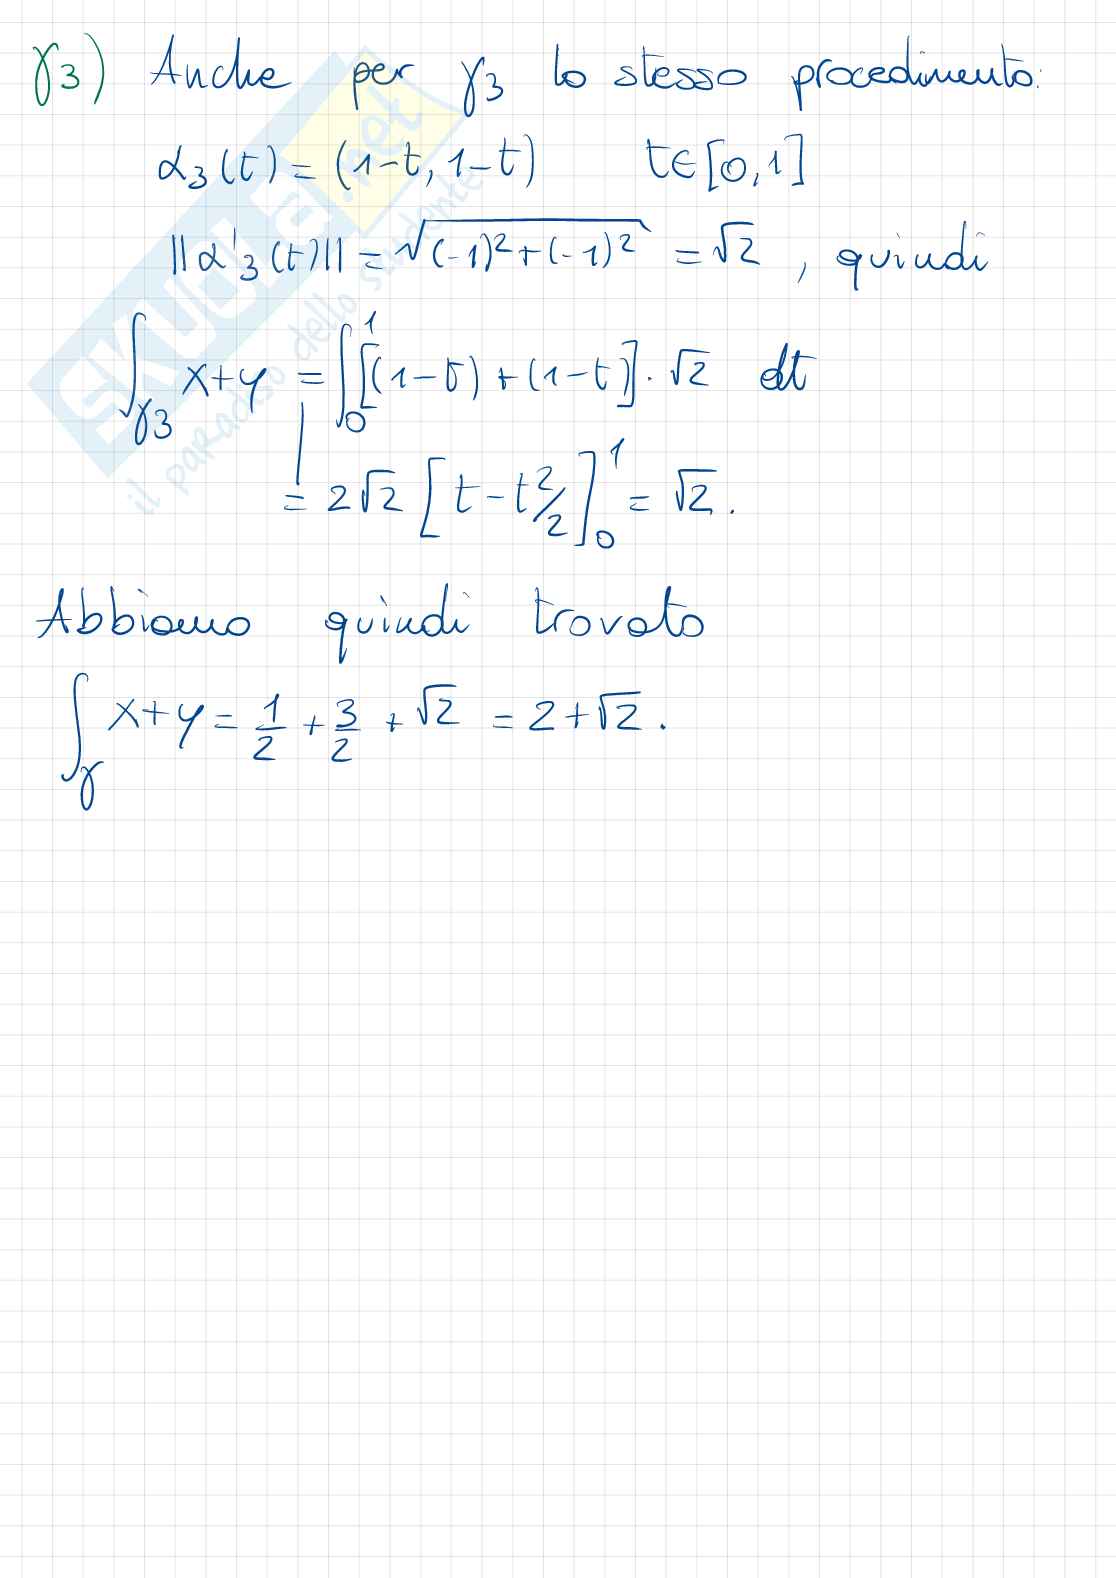 γ3) Anche per γ3 lo stesso procedimento:
α3(t) = (1-t, 1-t) t∈[0,1]
||α'3(t)|| = √(-1)²+(-1)² = √2 , quindi
∫γ3 x+y = ∫₀¹ [(1-t)+(1-t)]·√2 dt
= 2√2 [t-t²/2]₀¹ = √2.
Abbiamo quindi trovato
∫γ x+y = 1/2 + 3/2 + √2 = 2+√2.
SKUOLA.net
il paradiso dello studente